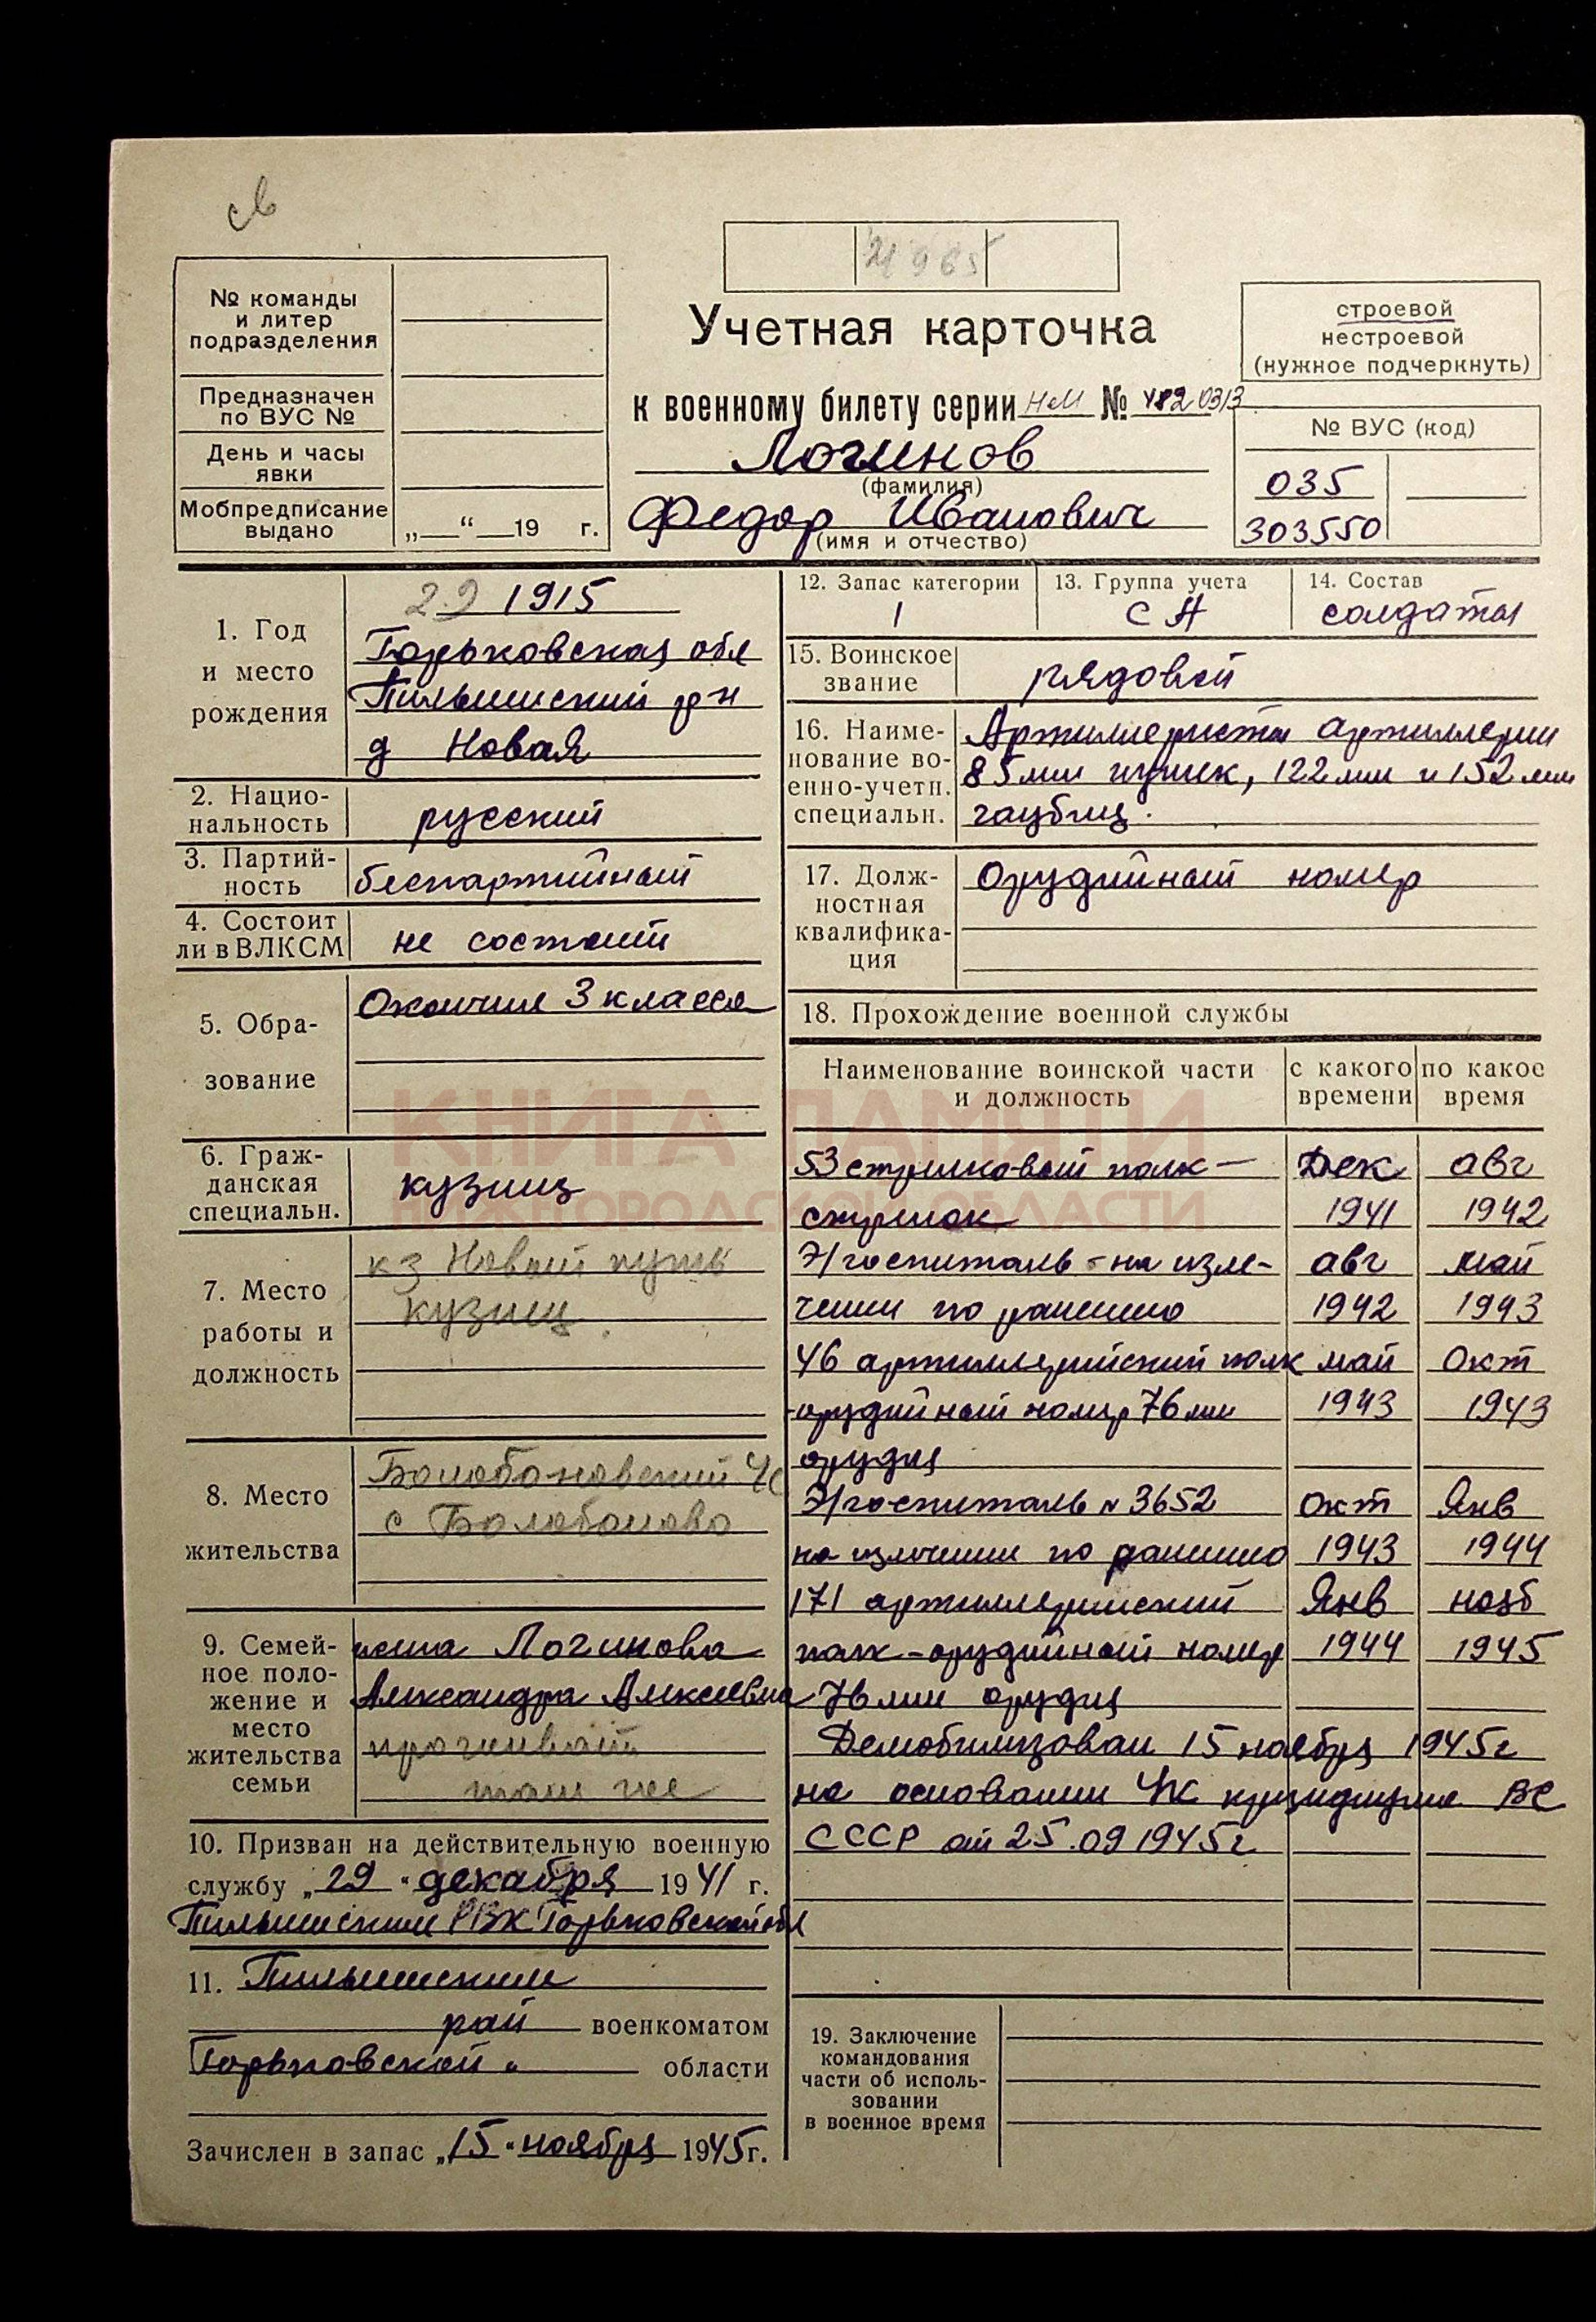 № команды
и литер
подразделения
Предназначен
по ВУС №
День и часы
явки
Мобпредписание
выдано
„ “ 19 г.
Учетная карточка
к военному билету серии НМ №
Логинов
(фамилия)
Федор Иванович
(имя и отчество)
строевой
нестроевой
(нужное подчеркнуть)
№ ВУС (код)
035
303550
1. Год
и место
рождения
1915
Горьковская обл
Пильнинский р-н
д Новая
2. Нацио-
нальность
русский
3. Партий-
ность
беспартийный
4. Состоит
ли в ВЛКСМ
не состоит
5. Обра-
зование
Окончил 3 класса
6. Граж-
данская
специальн.
кузнец
7. Место
работы и
должность
кз Новый путь
кузнец
8. Место
жительства
с Болобоново
9. Семей-
ное поло-
жение и
место
жительства
семьи
жена Логинова
Александра Алексеевна
проживает
там же
10. Призван на действительную военную
службу „29“ декабря 1941 г.
Пильнинским РВК Горьковской обл
11. Пильнинским
рай военкоматом
Горьковской области
Зачислен в запас „15“ ноября 1945 г.
12. Запас категории
1
13. Группа учета
СА
14. Состав
солдаты
15. Воинское
звание
рядовой
16. Наиме-
нование во-
енно-учетн.
специальн.
Артиллеристы артиллерии
85 мм пушек, 122 мм и 152 мм
гаубиц.
17. Долж-
ностная
квалифика-
ция
Орудийный номер
18. Прохождение военной службы
Наименование воинской части
и должность
с какого
времени
по какое
время
53 стрелковый полк – Дек авг
стрелок 1941 1942
Э/госпиталь – на изле- авг май
чении по ранению 1942 1943
46 артиллерийский полк май окт
-орудийный номер 76 мм 1943 1943
орудия
Э/госпиталь № 3652 окт Янв
на излечении по ранению 1943 1944
171 артиллерийский Янв нояб
полк – орудийный номер 1944 1945
76 мм орудия
Демобилизован 15 ноября 1945 г
на основании УК президиума ВС
СССР от 25.09 1945 г
19. Заключение
командования
части об исполь-
зовании
в военное время
КНИГА ПАМЯТИ
НИЖЕГОРОДСКОЙ ОБЛАСТИ